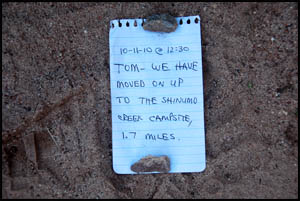 10-11-10 @ 12:30
TOM- WE HAVE
MOVED ON UP
TO THE SHINUMO
CREEK CAMPSITE,
1.7 MILES.